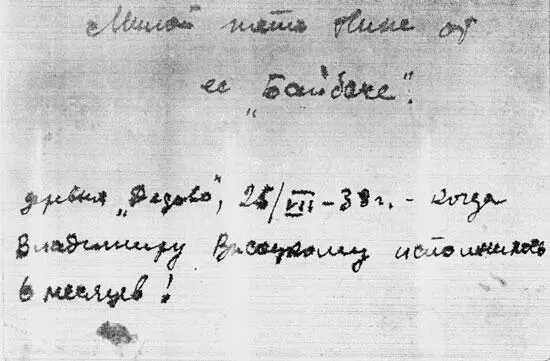 Милой тете Нине от
ее „Байбаке".
деревня „Дедово", 25/VII-38 г. - когда
Владимиру Высоцкому исполнилось
6 месяцев!